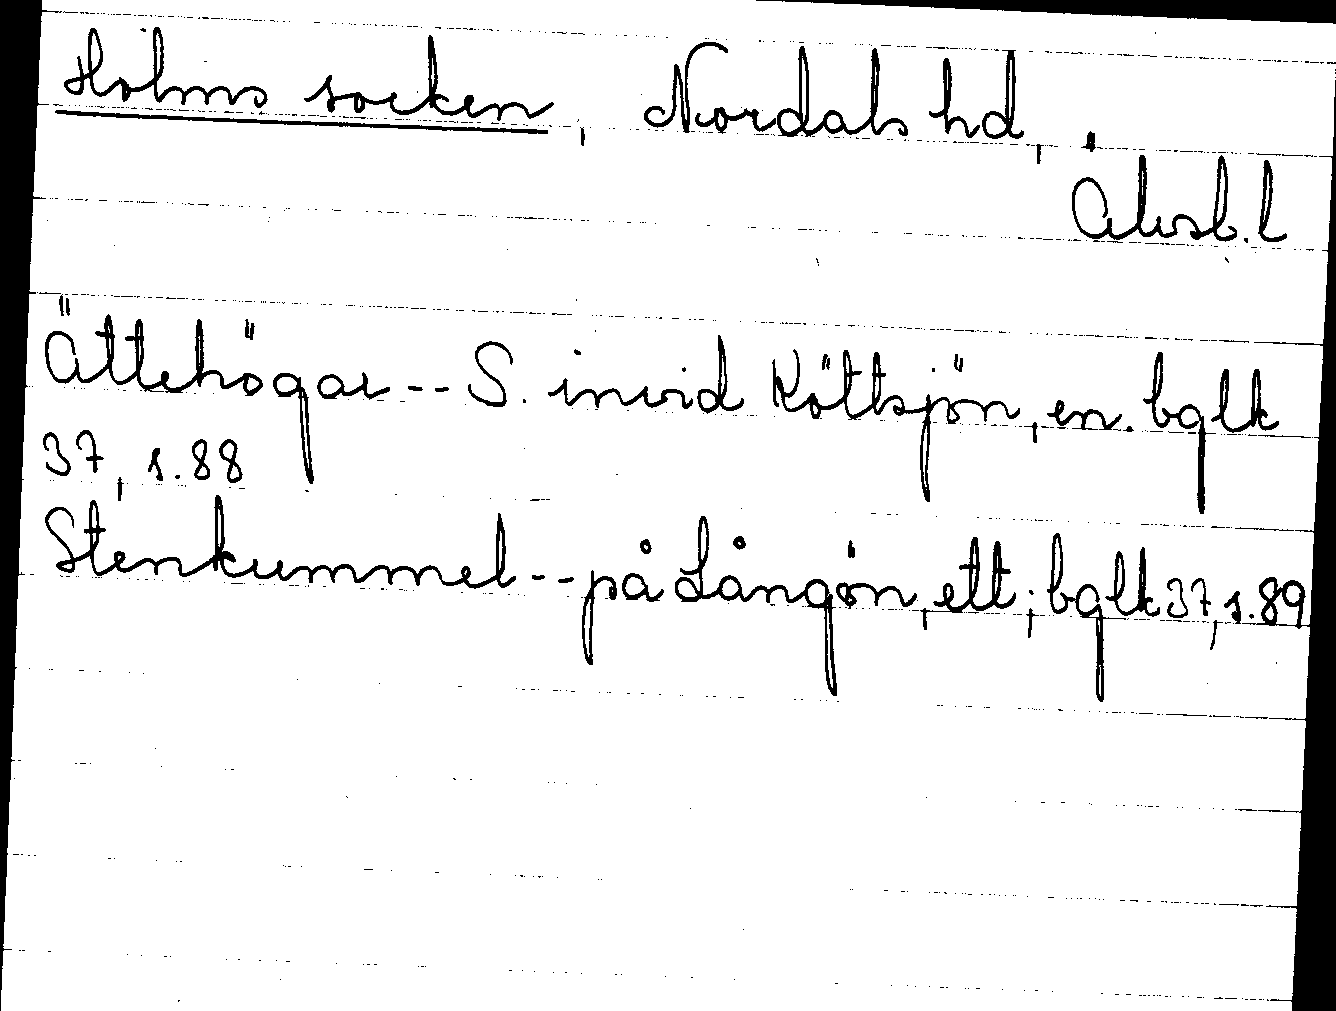 Holms socken, Nordals hd,
Älvsb.l
Ättehögar -- S. invid Köttsjön, en. bglk
37, s.88
Stenkummel -- på Långön, ett; bglk 37, s.89